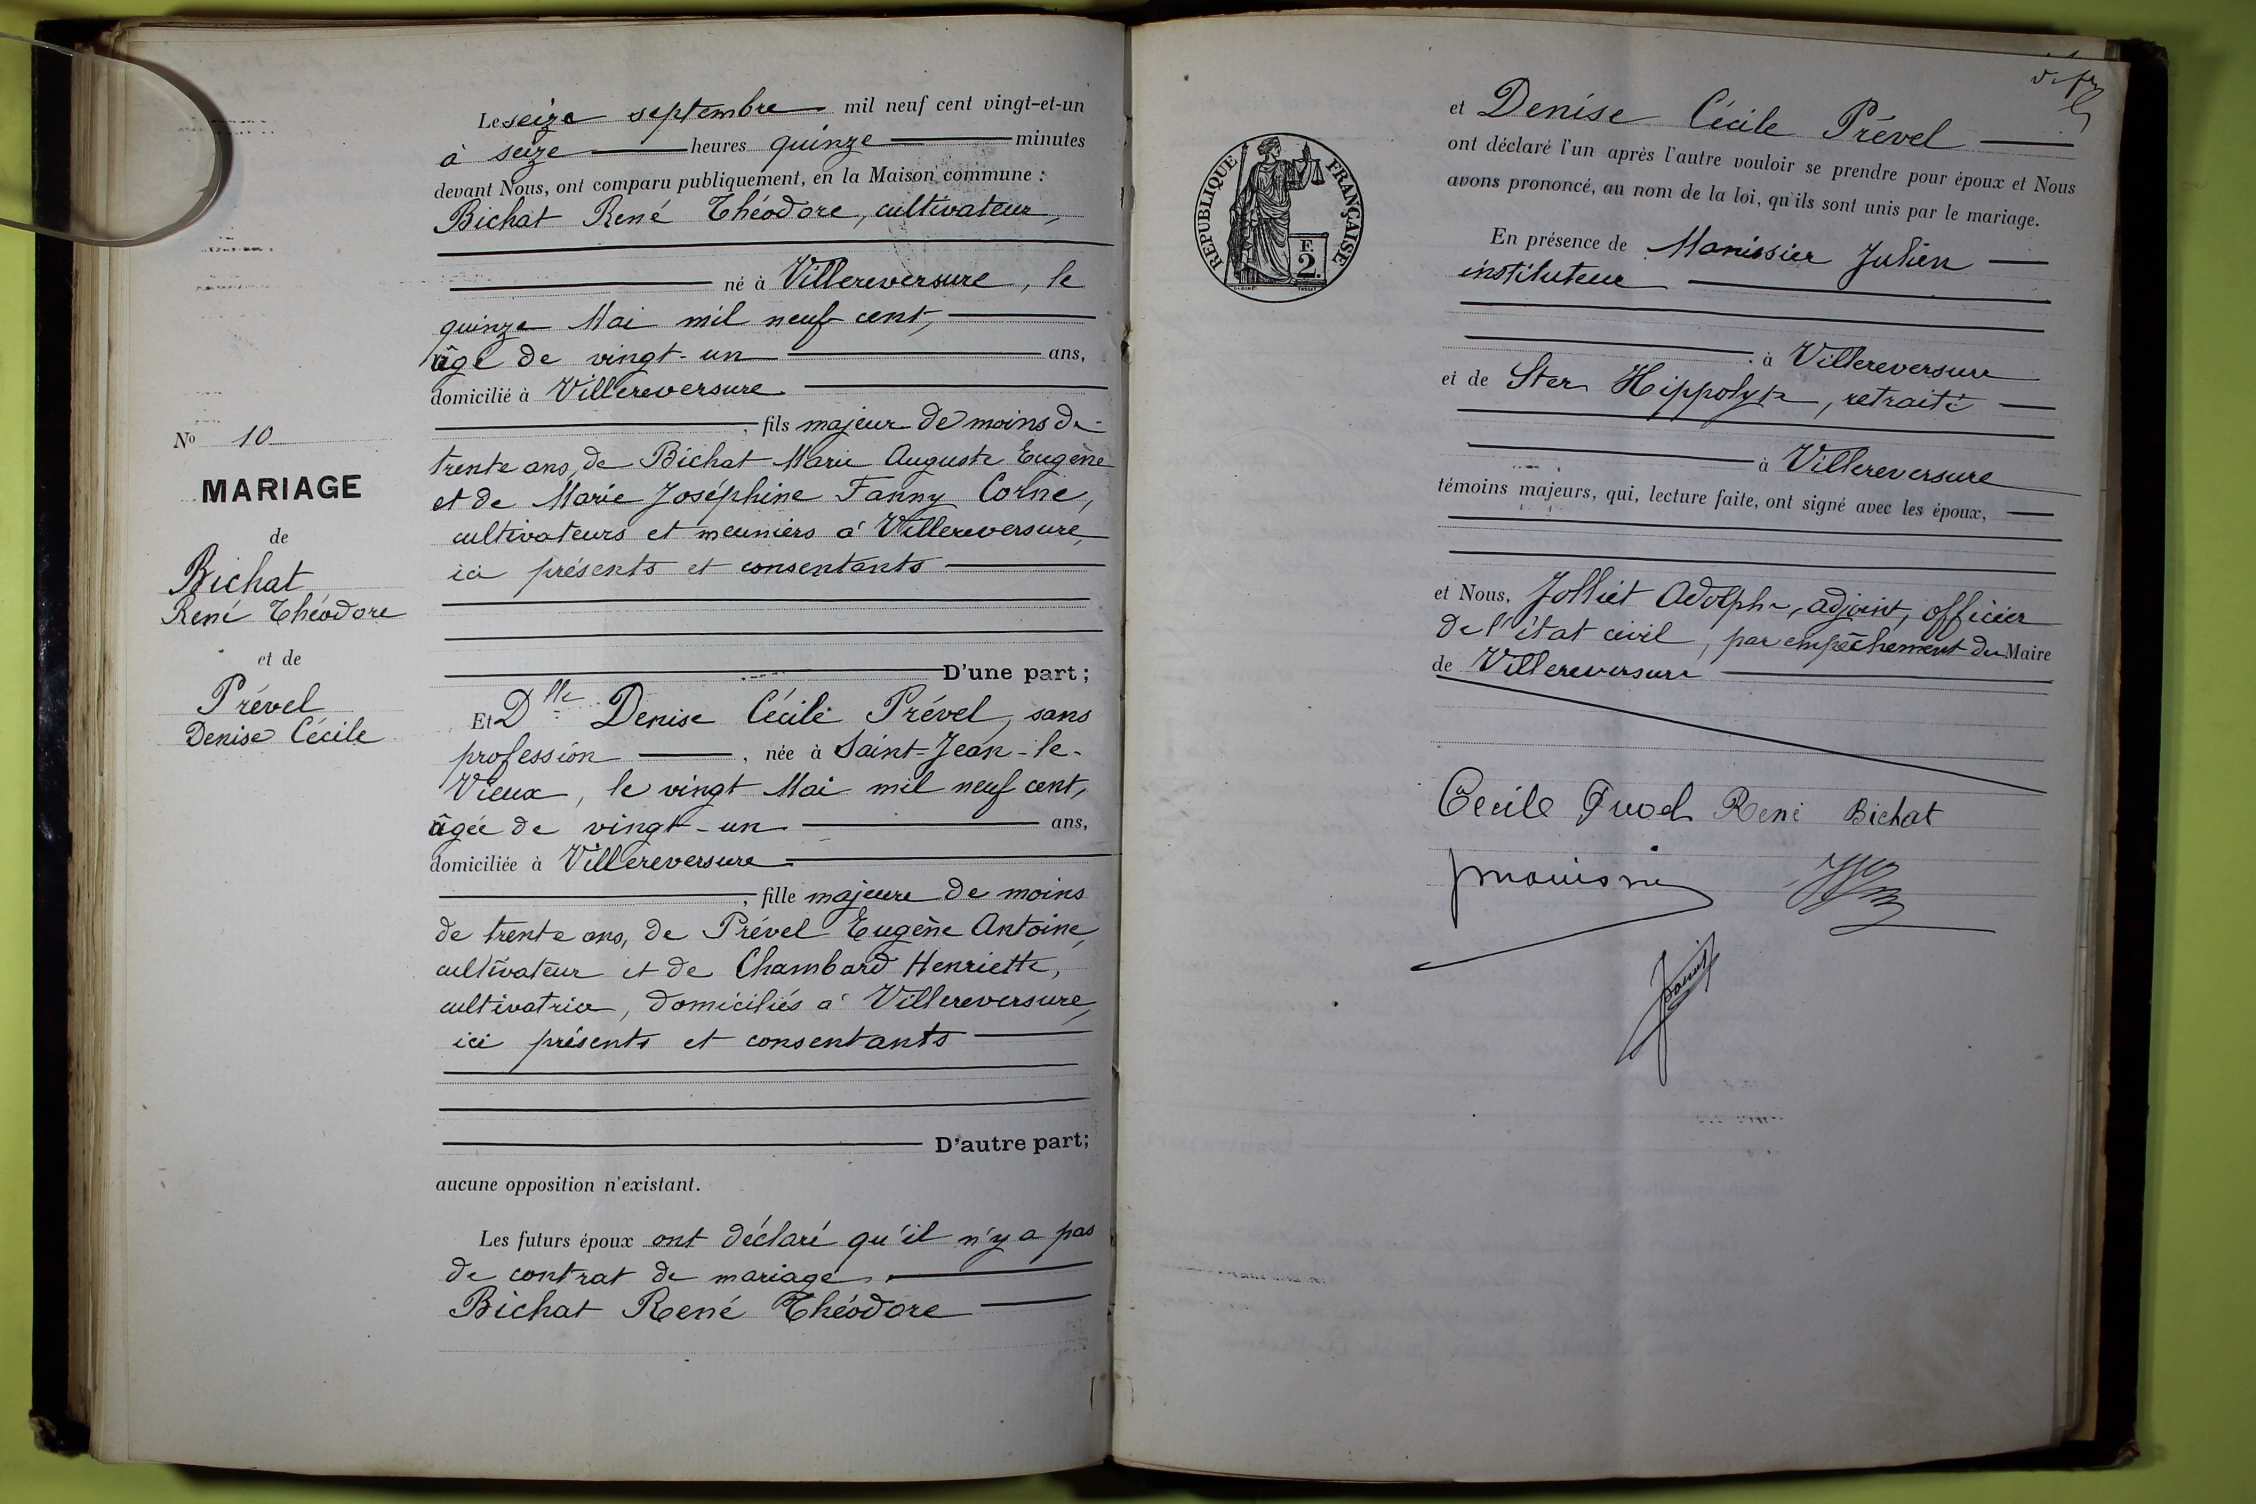 No 10
MARIAGE
de
Bichat
René Théodore
et de
Prével
Denise Cécile
Le seize septembre mil neuf cent vingt-et-un
à seize heures quinze minutes
devant Nous, ont comparu publiquement, en la Maison commune :
Bichat René Théodore, cultivateur,
né à Villereversure, le
quinze Mai mil neuf cent,
âgé de vingt-un ans,
domicilié à Villereversure
, fils majeur de moins de
trente ans, de Bichat Marie Auguste Eugène
et de Marie Joséphine Fanny Corne,
cultivateurs et meuniers à Villereversure,
ici présents et consentants
D'une part;
Et Dlle Denise Cécile Prével, sans
profession, née à Saint-Jean-le-
Vieux, le vingt Mai mil neuf cent,
âgée de vingt-un ans,
domiciliée à Villereversure
, fille majeure de moins
de trente ans, de Prével Eugène Antoine,
cultivateur et de Chambard Henriette,
cultivatrice, domiciliés à Villereversure,
ici présents et consentants
D'autre part;
aucune opposition n'existant.
Les futurs époux ont déclaré qu'il n'y a pas
de contrat de mariage.
Bichat René Théodore
RÉPUBLIQUE FRANÇAISE
F.
2.
et Denise Cécile Prével
ont déclaré l'un après l'autre vouloir se prendre pour époux et Nous
avons prononcé, au nom de la loi, qu'ils sont unis par le mariage.
En présence de Manissier Julien
instituteur
à Villereversure
et de Ster Hippolyte, retraité
à Villereversure
témoins majeurs, qui, lecture faite, ont signé avec les époux,
et Nous, Jolliet Adolphe, adjoint, officier
de l'état civil, par empêchement du Maire
de Villereversure
Cecile René Bichat